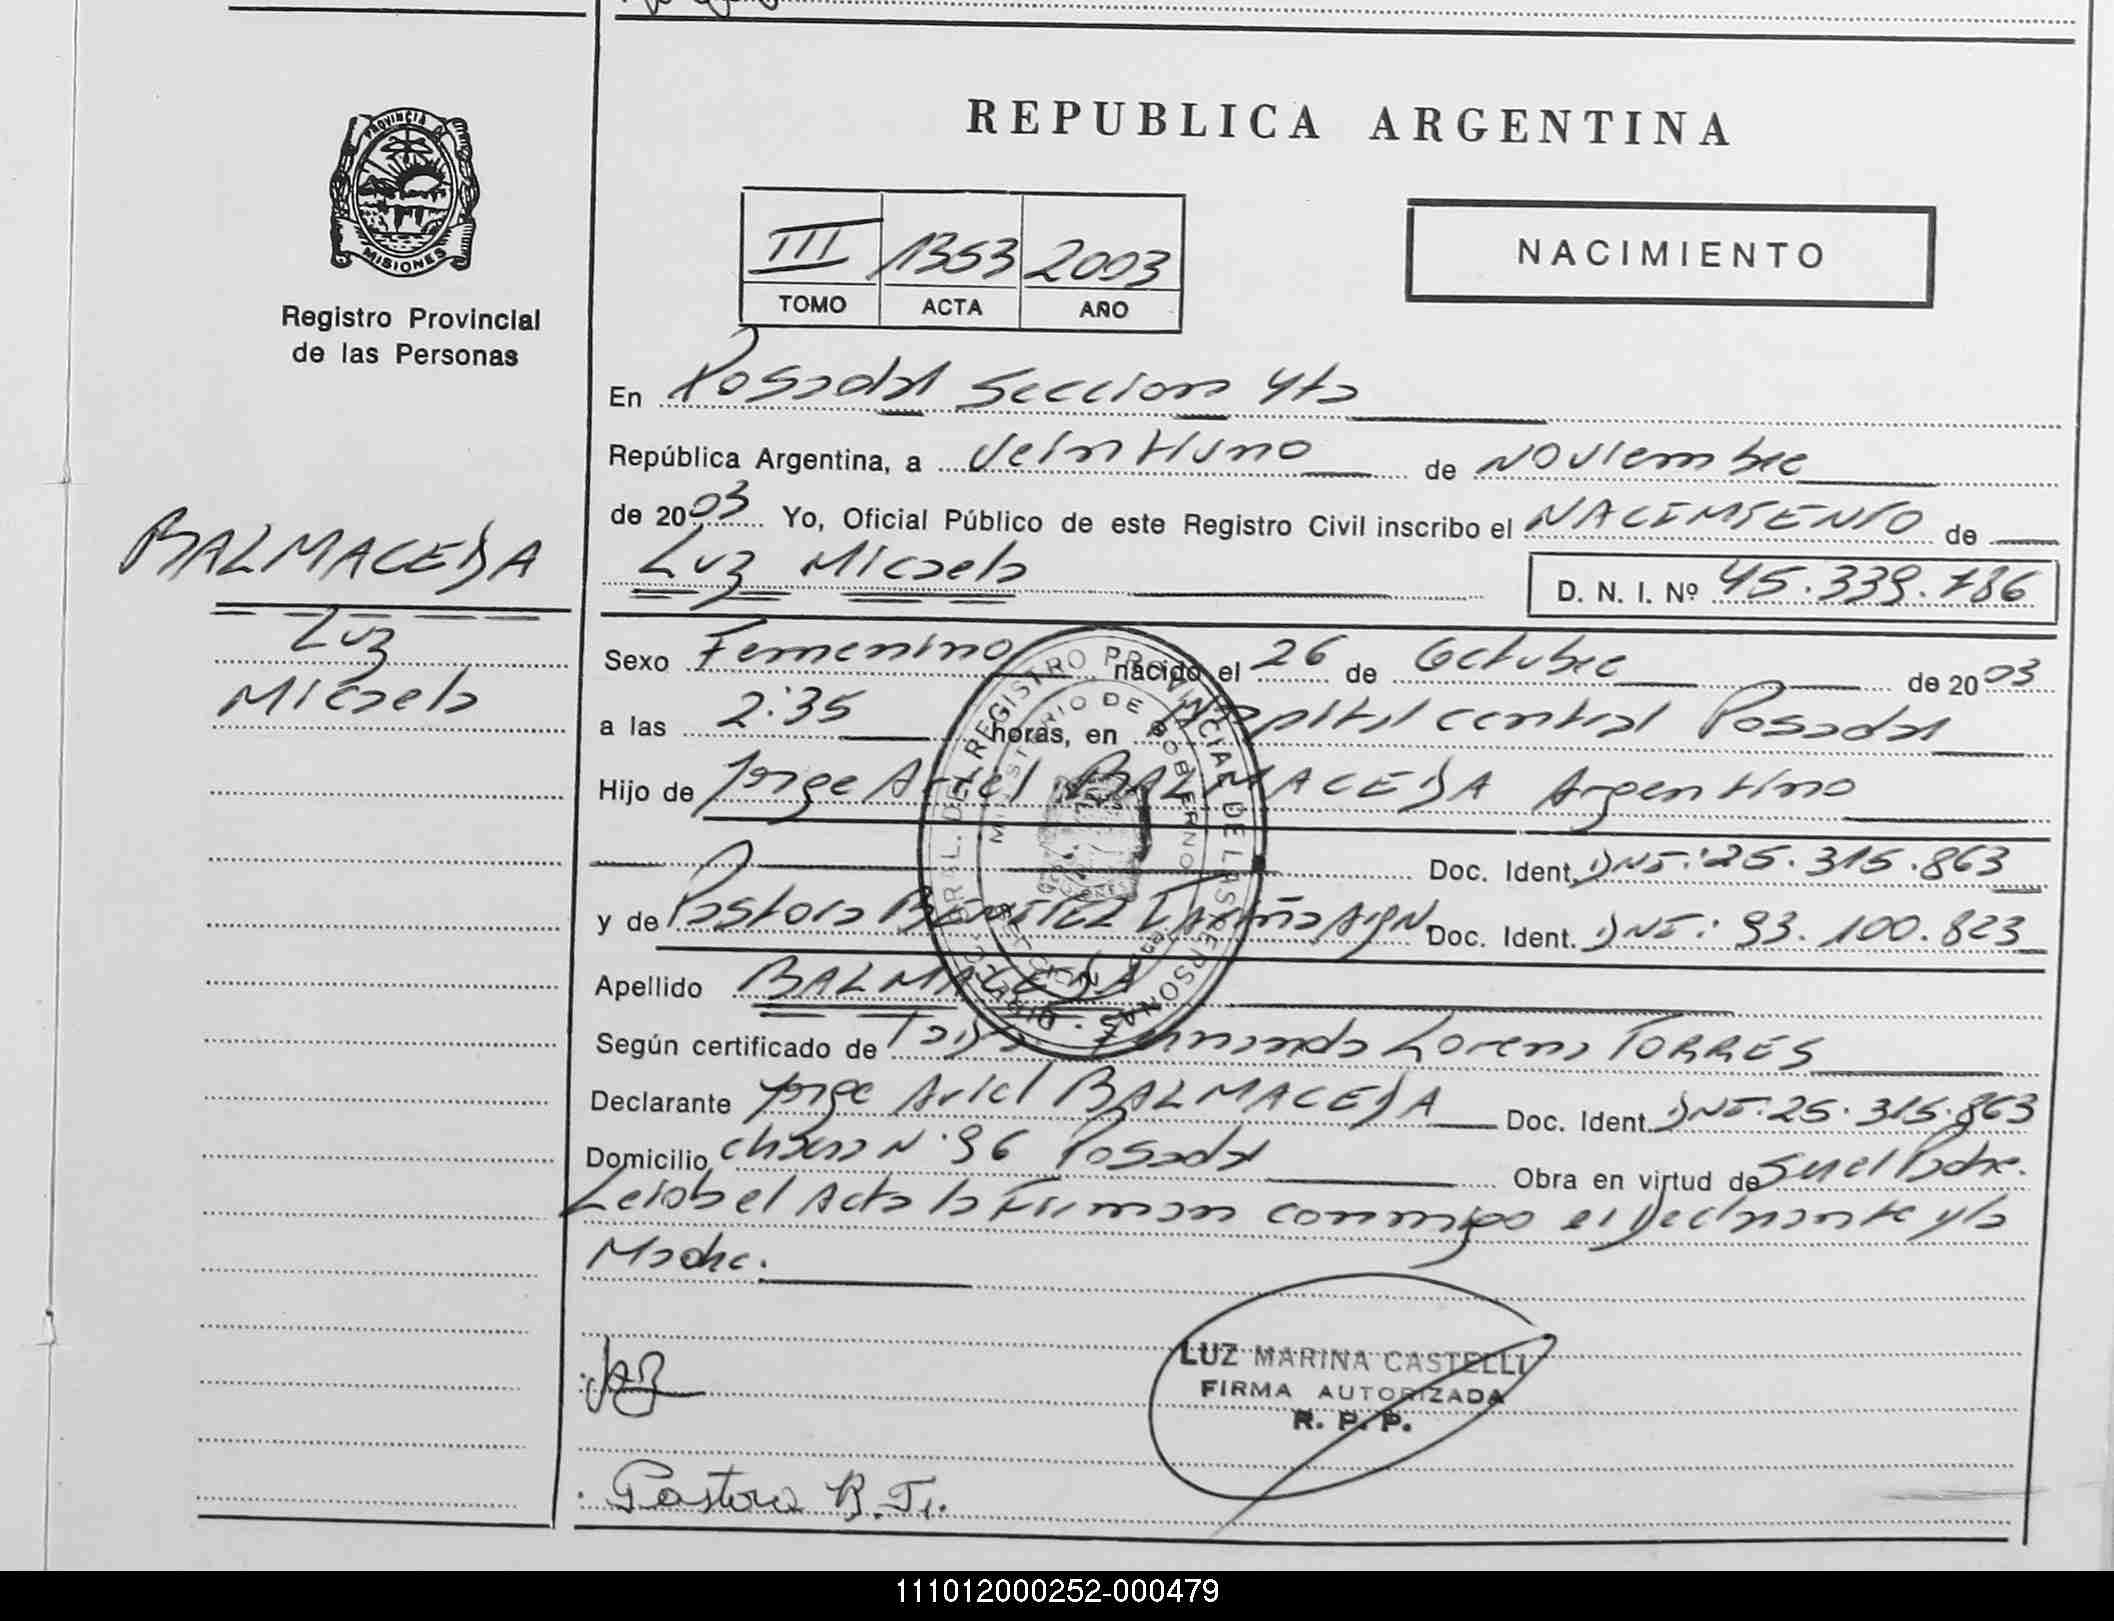 REPUBLICA ARGENTINA
PROVINCIA DE
MISIONES
Registro Provincial
de las Personas
III 1353 2003
TOMO ACTA AÑO
NACIMIENTO
En Posadas Seccion 4ta
República Argentina, a Veintiuno de Noviembre
de 2003 Yo, Oficial Público de este Registro Civil inscribo el NACIMIENTO de
Luz Micaela D. N. I. Nº 45.339.786
BALMACEDA
Luz
Micaela
Sexo Femenino nacido el 26 de Octubre de 2003
a las 2:35 horas, en Hospital central Posadas
Hijo de Jorge Ariel BALMACEDA Argentino
Doc. Ident. DNI: 25.315.863
y de Pastora BENITEZ Doc. Ident. DNI: 93.100.823
Apellido BALMACEDA
Según certificado de Fernanda Lorena TORRES
Declarante Jorge Ariel BALMACEDA Doc. Ident. DNI: 25.315.863
Domicilio chacra N° 96 Posadas Obra en virtud de Ser el Padre.
Leida el Acta la Firman conmigo el Declarante y la
Madre.
DIREC. GRAL. DEL REGISTRO PROVINCIAL DE LAS PERSONAS
MINISTERIO DE GOBIERNO
LUZ MARINA CASTELLI
FIRMA AUTORIZADA
R. P. P.
Pastora B. T.
111012000252-000479